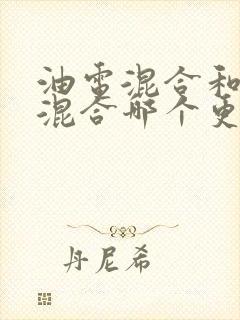 油电混合和
混合哪个更
丹尼希